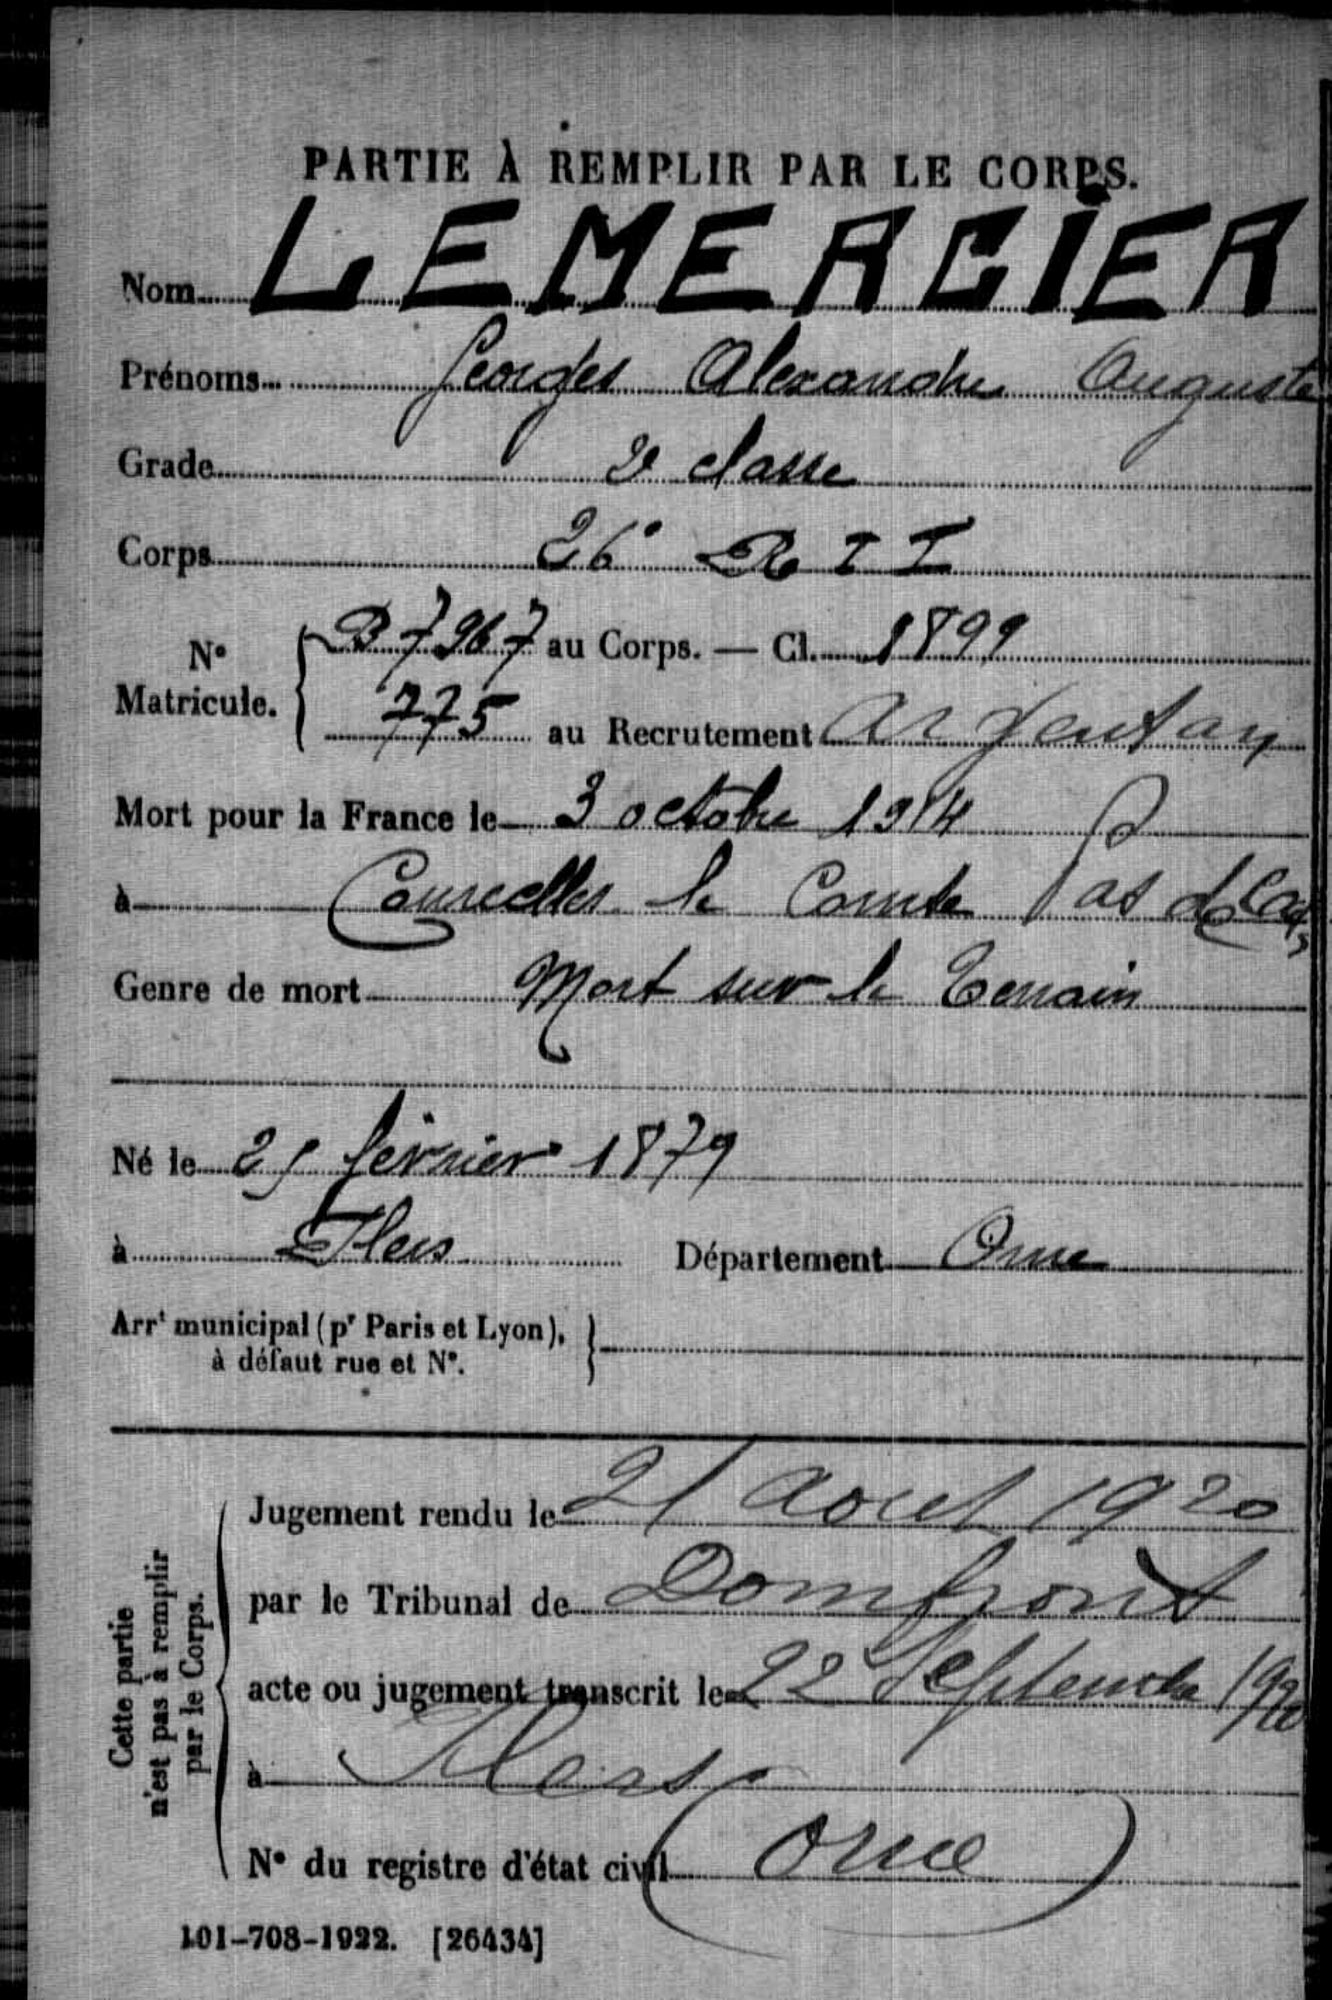 PARTIE À REMPLIR PAR LE CORPS.
Nom LEMERCIER
Prénoms Georges Alexandre Auguste
Grade 2e classe
Corps 26e R I T
N° Matricule. B 7967 au Corps. — Cl. 1899
775 au Recrutement Argentan
Mort pour la France le 3 octobre 1914
à Courcelles le Comte Pas d Cais
Genre de mort Mort sur le Terrain
Né le 25 février 1879
à Flers Département Orne
Arrt municipal (pr Paris et Lyon),
à défaut rue et N°.
Cette partie
n'est pas à remplir
par le Corps.
Jugement rendu le 21 Aout 1920
par le Tribunal de Domfront
acte ou jugement transcrit le 22 Septembre 1920
à Flers
N° du registre d'état civil (Orne)
101-708-1922. [26434]